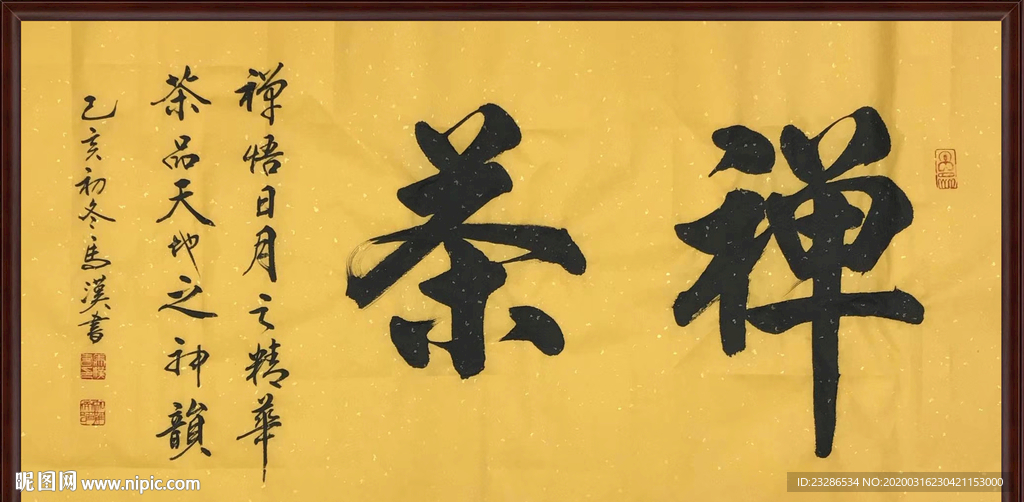 禅茶
禅悟日月之精華
茶品天地之神韻
己亥初冬馬漢書
昵图网 www.nipic.com
ID:23286534 NO:20200316230421153000